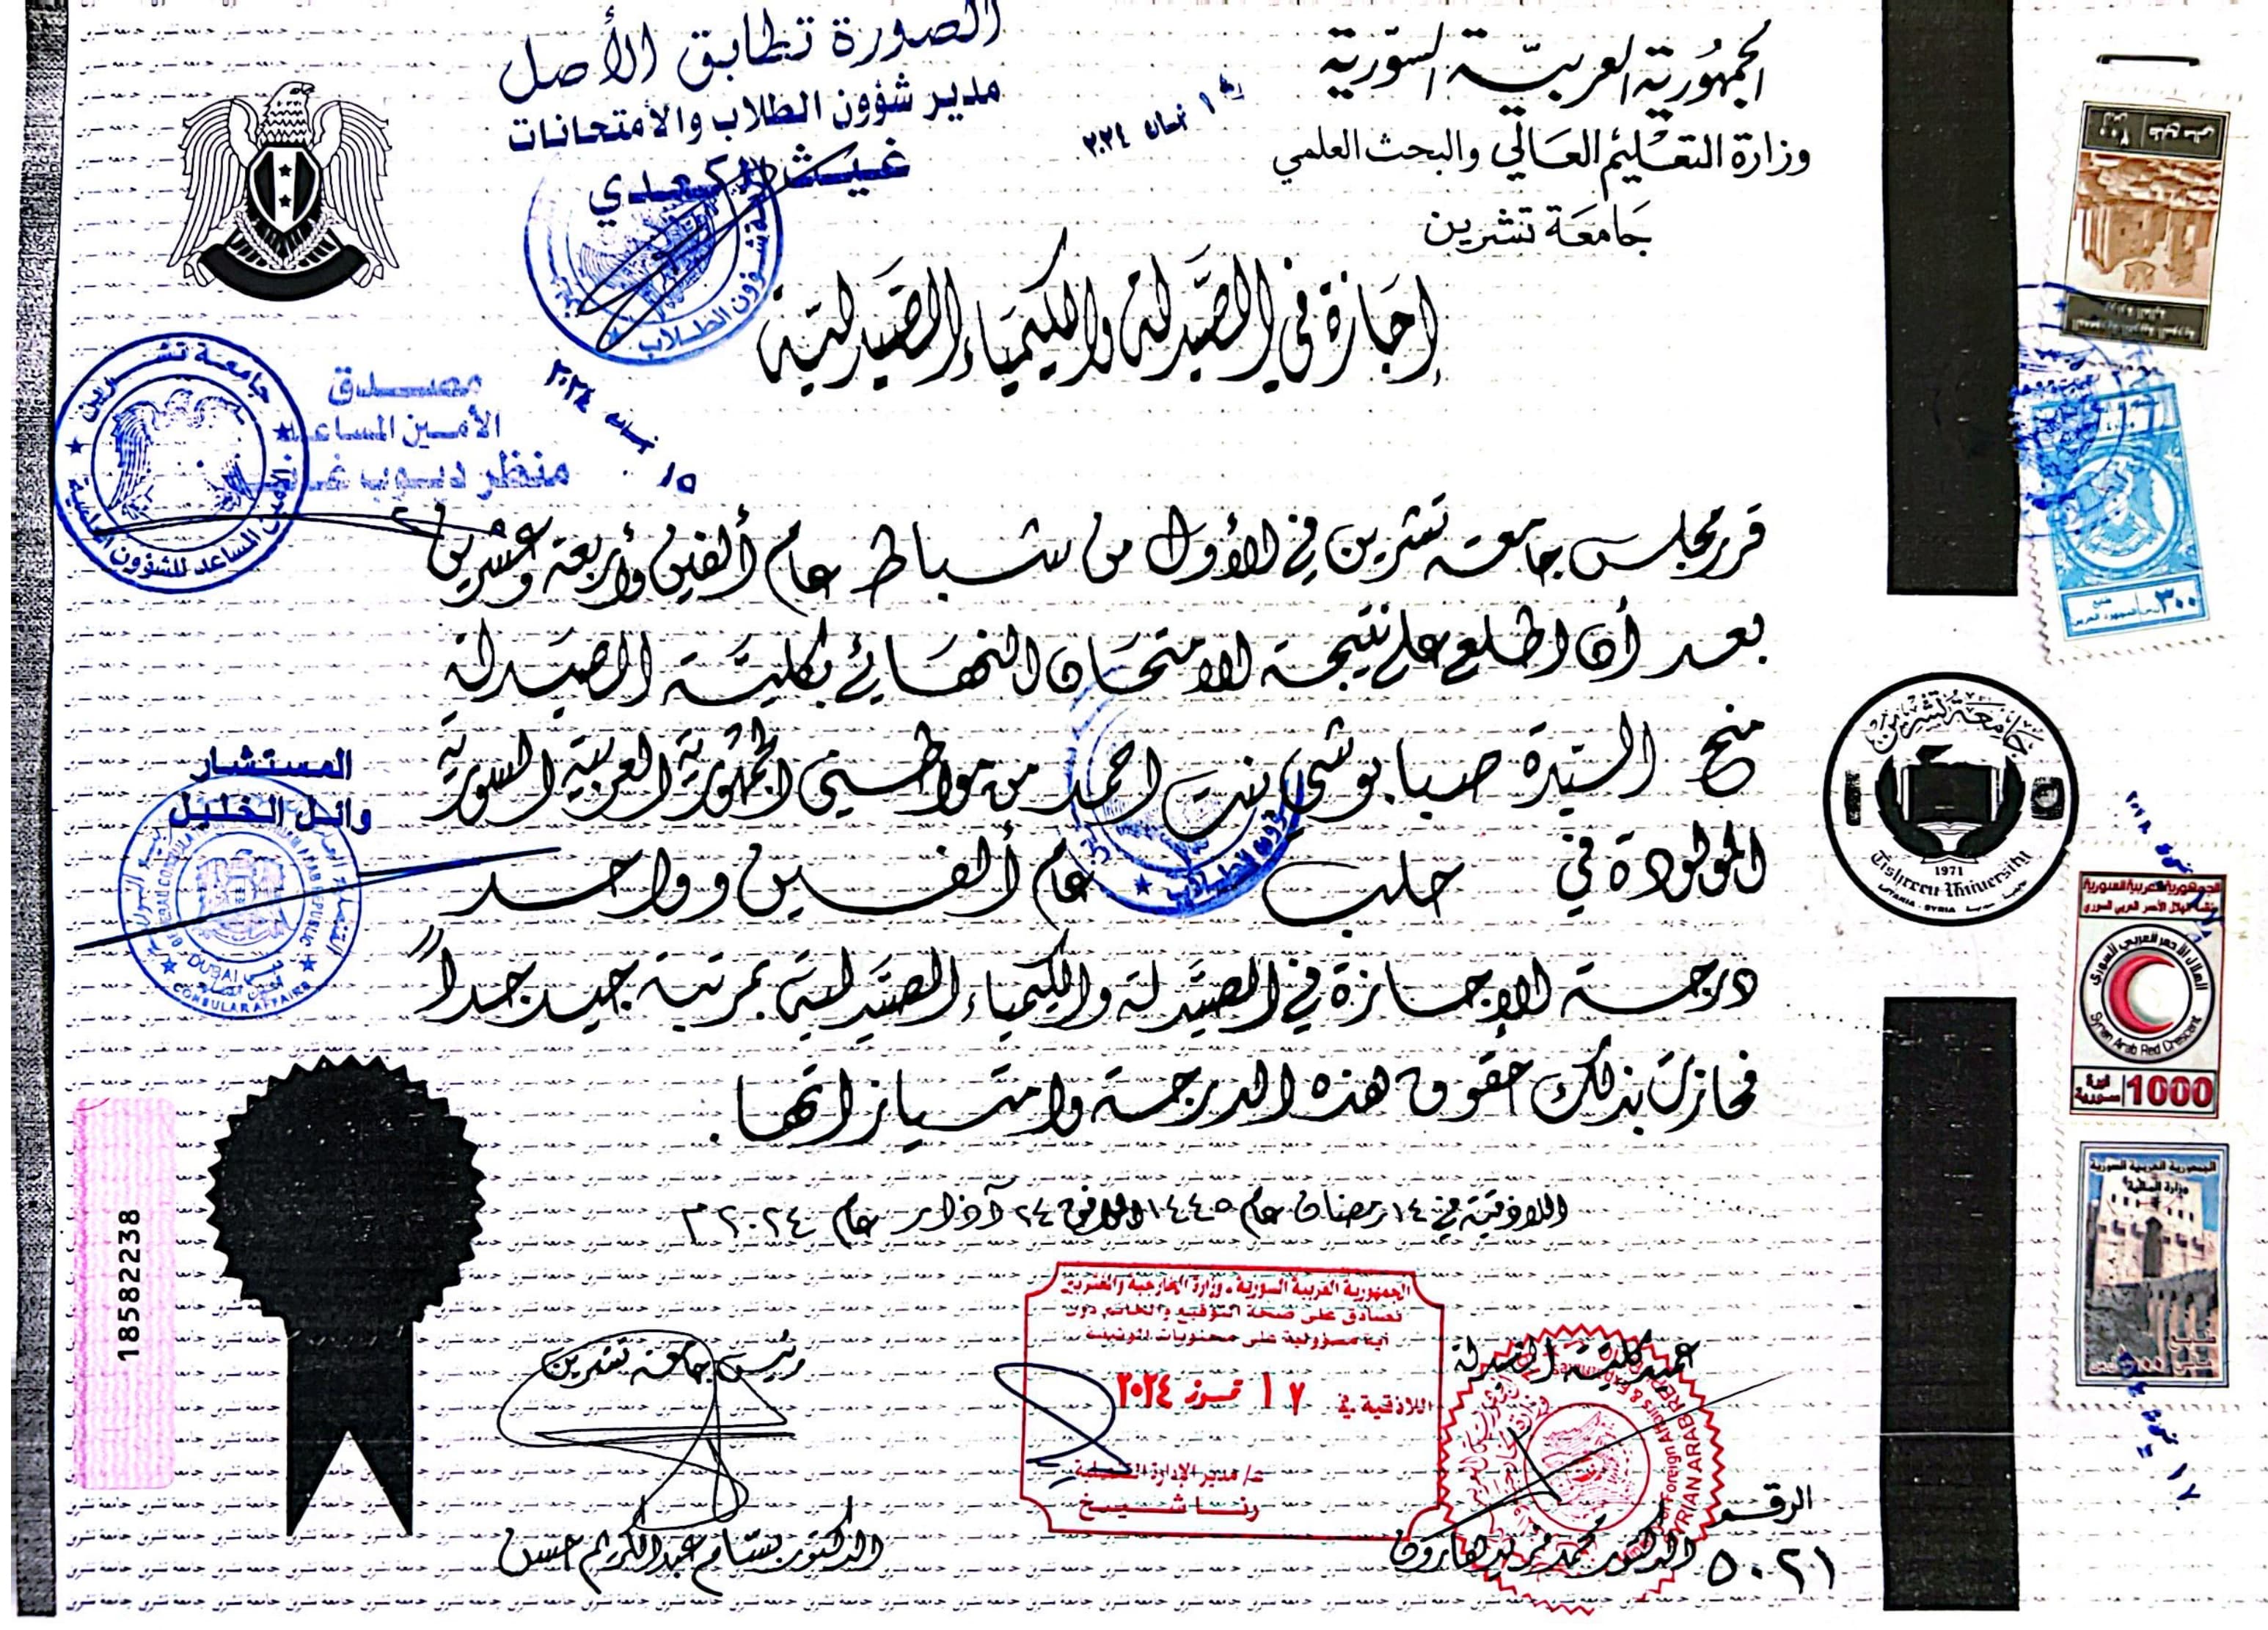 الجمهورية العربية السورية
وزارة التعليم العالي والبحث العلمي
جامعة تشرين
١٥ نيسان ٢٠٢٤
الصورة تطابق الأصل
مدير شؤون الطلاب والأمتحانات
غيث
شؤون الطلاب
إجازة في الصيدلة والكيمياء الصيدلية
١٥ نيسان ٢٠٢٤
جامعة تشرين
الأمين المساعد للشؤون
مصدق
الأمين المساعد
منظر ديوب
قرر مجلس جامعة تشرين في الأول من شباط عام ألفين وأربعة وعشرين
بعد أن اطلع على نتيجة الامتحان النهائي بكلية الصيدلة
منح السيدة صبا بوشي بنت احمد من مواطني الجمهورية العربية السورية
المولودة في حلب عام ألفين وواحد
درجة الإجازة في الصيدلة والكيمياء الصيدلية بمرتبة جيد جداً
فحازت بذلك حقوق هذه الدرجة وامتيازاتها.
اللاذقية في ١٤ رمضان عام ١٤٤٥ الموافق ٢٤ آذار عام ٢٠٢٤ م
المستشار
وائل الخليل
DUBAI دبي
CONSULAR AFFAIRS
18582238
جامعة تشرين
1971
Tishreen University
SYRIA
٣٠٠
الجمهورية العربية السورية
الهلال الأحمر العربي السوري
Syrian Arab Red Crescent
1000 ليرة سورية
الجمهورية العربية السورية
وزارة المالية
الجمهورية العربية السورية - وزارة الخارجية والمغتربين
نصادق على صحة التوقيع والخاتم دون
أية مسؤولية على محتويات الوثيقة
اللاذقية في ١٧ تموز ٢٠٢٤
ع/ مدير الإدارة القنصلية
رنا شيخ
عميد كلية الصيدلة
الدكتور محمد هارون
SYRIAN ARAB
Foreign Affairs &
رئيس جامعة تشرين
الدكتور بسام عبد الكريم حسن
الرقم
٥٠٢١